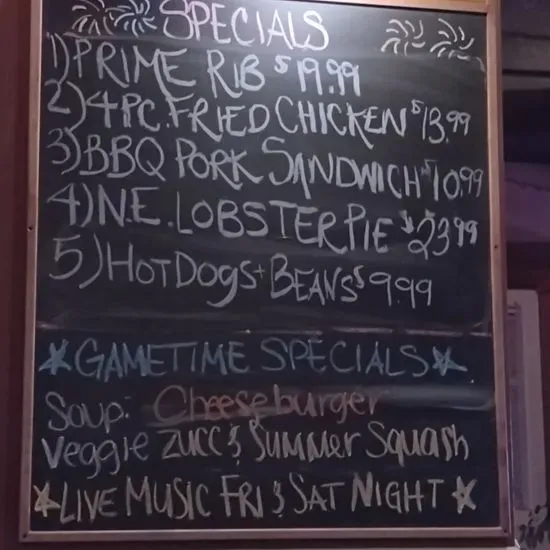 SPECIALS
1) PRIME RIB $19.99
2) 4PC. FRIED CHICKEN $13.99
3) BBQ PORK SANDWICH $10.99
4) N.E. LOBSTER PIE $23.99
5) HOT DOGS + BEANS $9.99
GAMETIME SPECIALS
Soup: Cheeseburger
Veggie ZUCC & Summer Squash
LIVE MUSIC FRI & SAT NIGHT